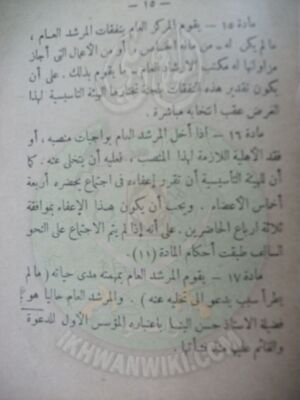 — ١٥ —
مادة ١٥ — يقوم المركز العام بنفقات المرشد العام ،
مالم يكن له — من ماله الخاص أو من الأعمال التى أجاز
مزاولتها له مكتب الارشاد العام — ما يقوم بذلك . على أن
يكون تقدير هذه النفقات بلجنة تختارها الهيئة التأسيسية لهذا
الغرض عقب انتخابه مباشرة .
مادة ١٦ — اذا أخل المرشد العام بواجبات منصبه ، أو
فقد الأهلية اللازمة لهذا المنصب ، فعليه أن يتخلى عنه . كما أن
للهيئة التأسيسية أن تقرر إعفاءه فى اجتماع يحضره أربعة
أخماس الأعضاء . ويجب أن يكون هذا الإعفاء بموافقة
ثلاثة ارباع الحاضرين . على أنه إذا لم يتم الاجتماع على النحو
السالف طبقت أحكام المادة (١١) .
مادة ١٧ — يقوم المرشد العام بمهمته مدى حياته ( ما لم
يطرأ سبب يدعو الى تخليه عنه ) . والمرشد العام حاليا هو
فضيلة الاستاذ حسن البنا باعتباره المؤسس الأول للدعوة
والقائم عليها منذ نشأتها .
IKHWANWIKI.COM